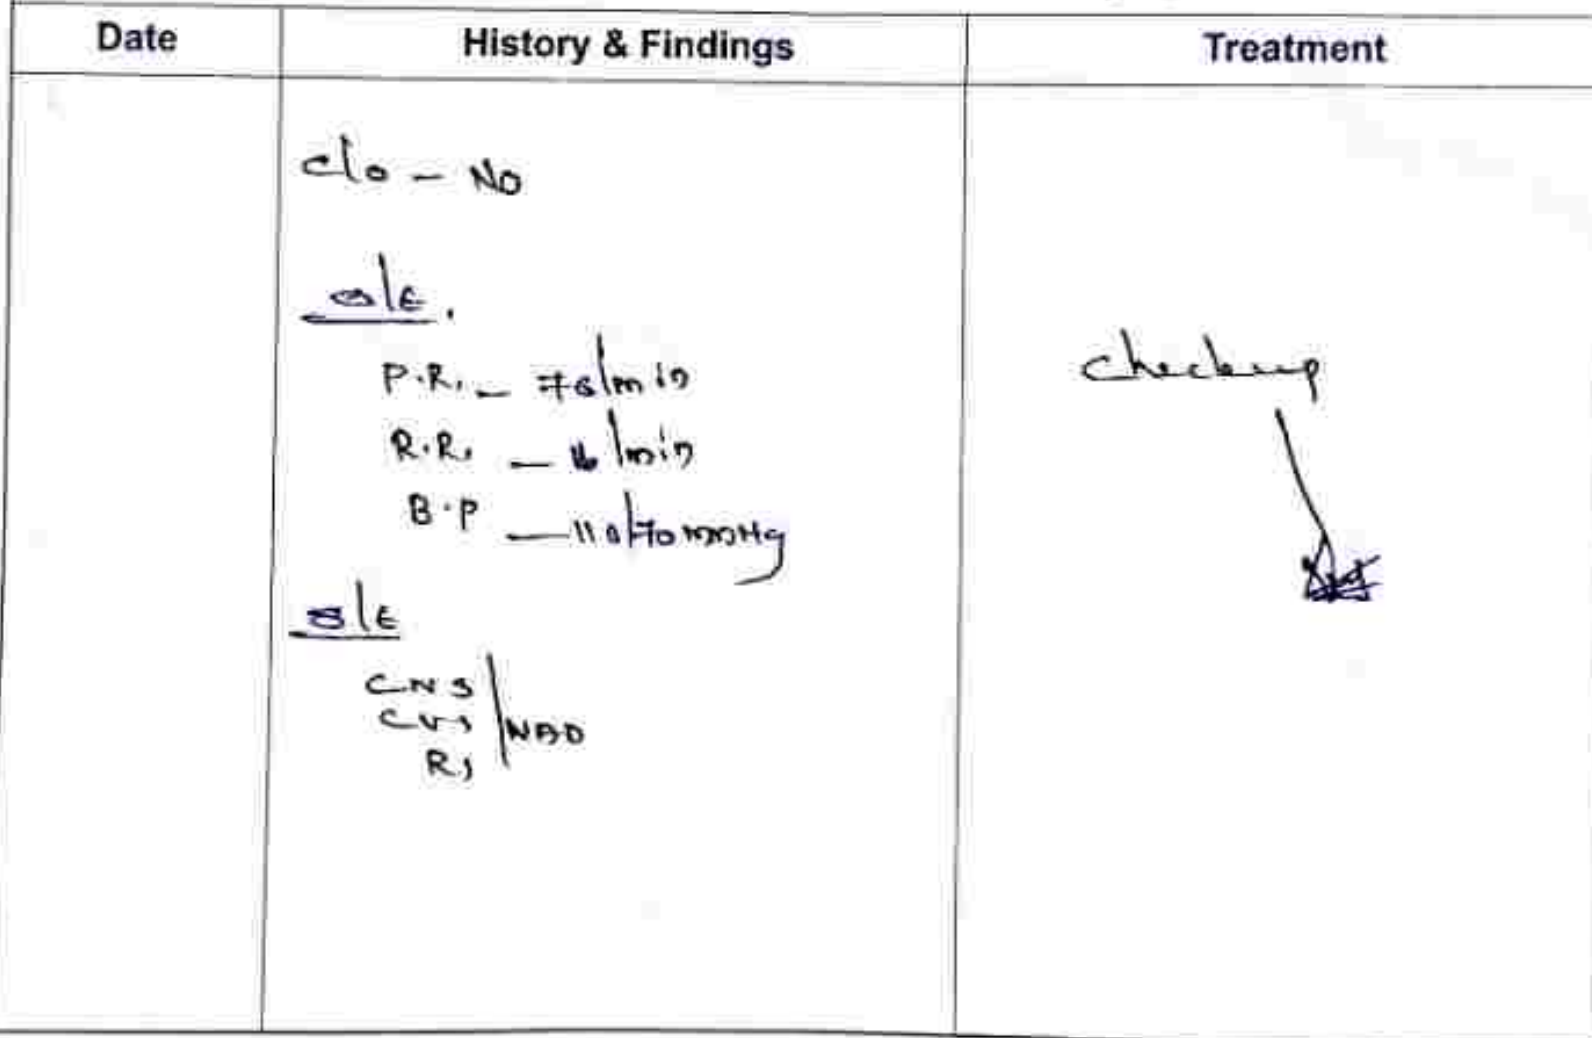 Date History & Findings Treatment
C/o - No
O/E.
P.R. - 76/min
checkup
R.R. - 16/min
B.P - 110/70 mmHg
S/E
CNS
CVS NAD
RS